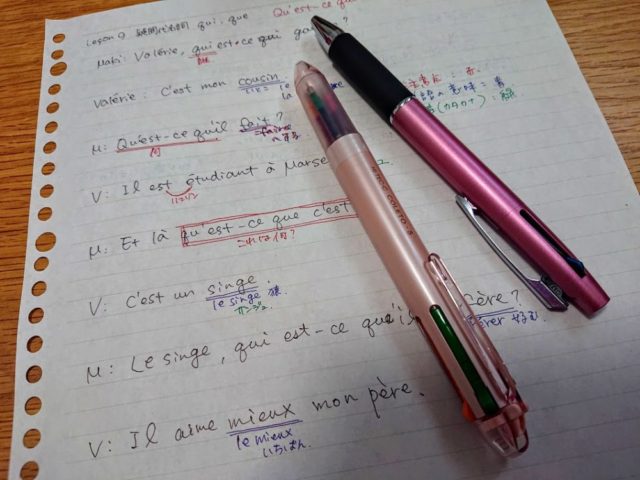 Leçon 9 疑問代名詞 qui, que Qu'est-ce qu
Maki: Valérie, qui est-ce qui ?
誰
Valérie: C'est mon cousin.
le
la
M: Qu'est-ce qu'il fait?
何 faire
V: Il est étudiant à Marse
M: Et là qu'est-ce que c'est
これは何?
V: C'est un singe.
le singe 猿
M: Le singe, qui est-ce qu'il cère?
érer 好む
V: Il aime mieux mon père.
le mieux
いちばん